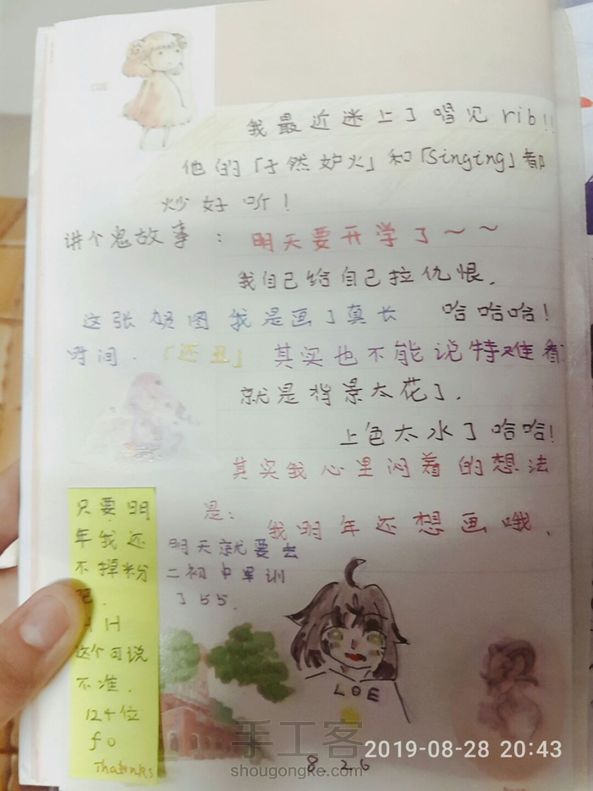 我最近迷上了唱见rib!!
他的「孑然妒火」和「Singing」都
炒好听!
讲个鬼故事: 明天要开学了~~
我自己给自己拉仇恨.
这张贺图我是画了真长 哈哈哈!
时间.「还丑」其实也不能说特难看
就是背景太花了.
上色太水了哈哈!
其实我心里闷着的想法
是: 我明年还想画哦.
明天就要去
二初中军训
了55.
只要明
年我还
不掉粉
吧.
HH
这个可说
不准.
124位
fo
Thatinks
LOE
8.26
手工客
shougongke.com
2019-08-28 20:43